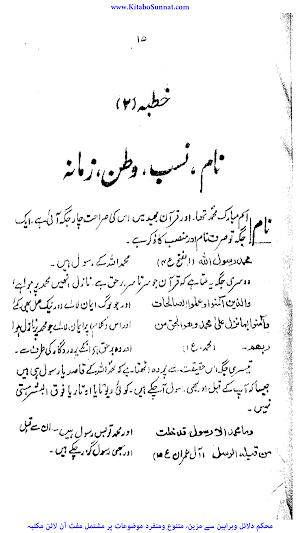 www.KitaboSunnat.com
۱۵
خطبہ (۲)
نام، نسب، وطن، زمانہ
نام اسم مبارک محمدؐ تھا۔ اور قرآن مجید میں اس کی صراحت چار جگہ آئی ہے، ایک
جگہ تو صرف نام اور منصب کا ذکر ہے۔
محمد رسول اللہ (الفتح ع ۴) محمدؐ اللہ کے رسول ہیں۔
دوسری جگہ یہ بتایا ہے کہ قرآن جو سرتا سر حق ہے نازل انھیں محمدؐ پر ہوا ہے؛
والذین آمنوا وعملوا الصالحات اور جو لوگ ایمان لائے اور نیک عمل بھی کئے
وآمنوا بما نزل علیٰ محمد وھو الحق من اور اس پر ایمان لائے جو محمدؐ پر نازل ہوا
ربھم۔ (محمد۔ ع ۱) اور وہ حق ہی ہے ان کے پروردگار کی طرف سے۔
تیسری جگہ اس حقیقت سے پردہ اٹھتا ہے کہ محمدؐ اللہ کے قاصد یا رسول ہی ہیں
جیسا کہ آپ کے قبل اور بھی رسول آ چکے ہیں۔ کوئی دیوتا یا اوتار یا فوق البشر ہستی
نہیں۔
وما محمد الا رسول قد خلت اور محمدؐ تو بس رسول ہیں۔ ان سے قبل
من قبلہ الرسل (آل عمران ع ۱۵) اور بھی رسول گزر چکے ہیں۔
محکم دلائل وبراہین سے مزین، متنوع ومنفرد موضوعات پر مشتمل مفت آن لائن مکتبہ